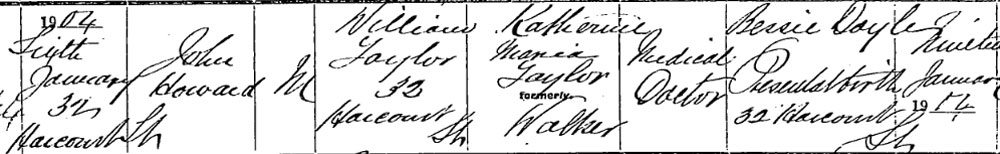 1904
January
32
Harcourt St
John
Howard
M
William
Taylor
32
Harcourt
St
Katherine
Maria
Taylor
formerly
Walker
Medical
Doctor
Bessie Doyle
Present at birth
32 Harcourt
St
January
1904